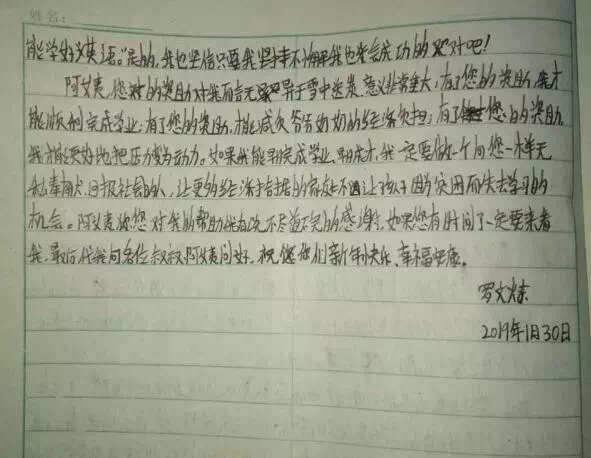 姓名:
能学好汉英语。"是的,我也坚信只要我坚持不懈我也会成功的对吧!
阿姨,您对的资助对我而言无异于雪中送炭,意义非常重大;有了您的资助,我才
能顺利完成学业;有了您的资助,才能减负爷爷奶奶的经济负担;有了您的资助,
我才能更好地把压力转为动力。如果我能完成学业,早成才,我一定要做一个向您一样无
私奉献、回报社会的人,让更多的经济拮据的家庭不让孩子因为贫困而失去学习的
机会。阿姨您对我的帮助我有说不尽道不完的感谢,如果您有时间了一定要来看
我,最后代我向各位叔叔阿姨问好,祝您们新年快乐、幸福安康。
罗文
2019年1月30日